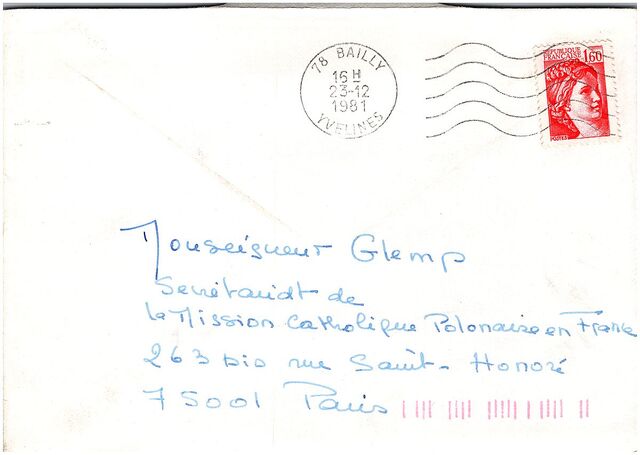 78 BAILLY
16H
23-12
1981
YVELINES
REPUBLIQUE
FRANÇAISE 1,60
POSTES
Monseigneur Glemp
Secrétariat de
la Mission Catholique Polonaise en France
263 bis rue Saint-Honoré
75001 Paris